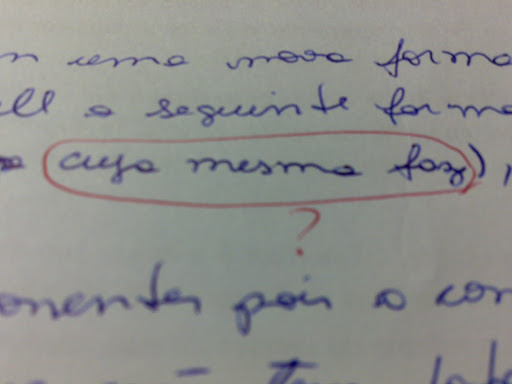 uma nova forma
a seguinte forma
cuja mesma faz),
?
ponentes pois a con